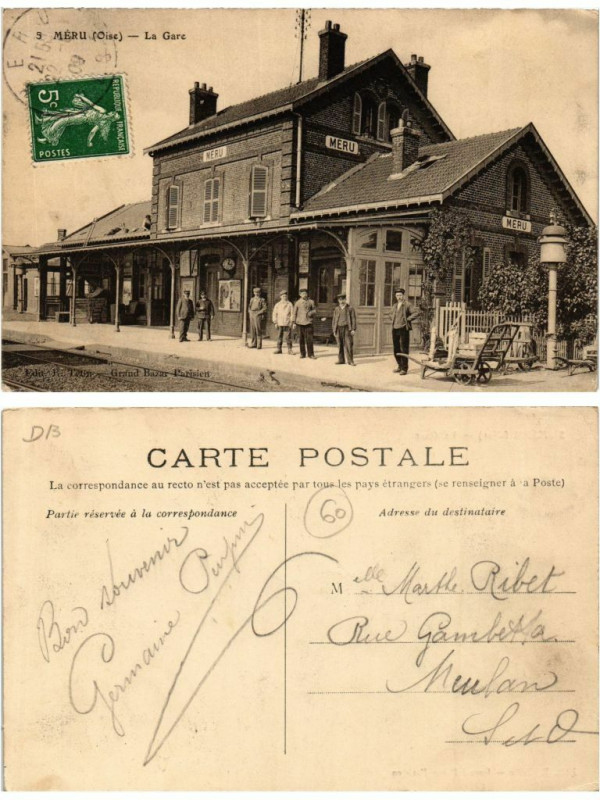 5 MÉRU (Oise) — La Gare
5c
REPUBLIQUE FRANÇAISE
POSTES
MÉRU
MÉRU
MÉRU
Grand Bazar Parisien
DB
CARTE POSTALE
La correspondance au recto n'est pas acceptée par tous les pays étrangers (se renseigner à la Poste)
Partie réservée à la correspondance
60
Adresse du destinataire
Bon souvenir
Germaine
6
Melle Marthe Ribet
Rue Gambetta
Meulan
S et O